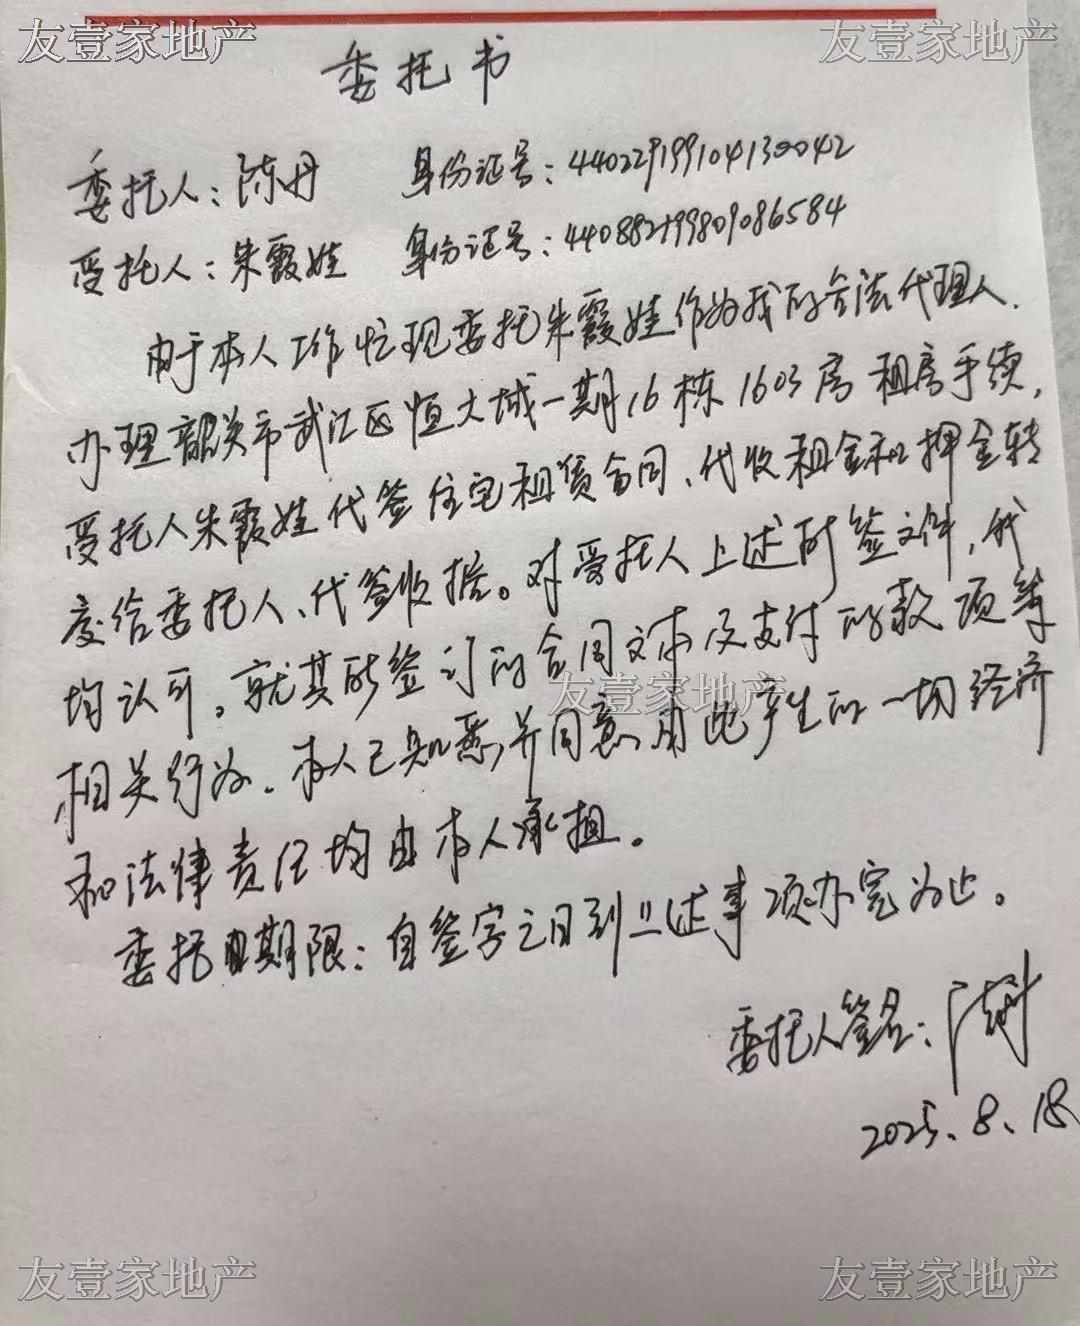 友壹家地产 友壹家地产
委托书
委托人：陈丹 身份证号：440229199104130042
受托人：朱霞娃 身份证号：440882199809086584
由于本人工作忙现委托朱霞娃作为我的合法代理人.
办理韶关市武江区恒大城一期16栋1603房租房手续,
受托人朱霞娃代签住宅租赁合同、代收租金和押金转
交给委托人、代签收据。对受托人上述所签文件,我
均认可。就其所签订的合同文本及支付的款项等
友壹家地产
相关行为.本人已知悉,并同意,由此产生的一切经济
和法律责任均由本人承担。
委托期限：自签字之日到上述事项办完为止。
委托人签名：陈丹
2025.8.18
友壹家地产 友壹家地产